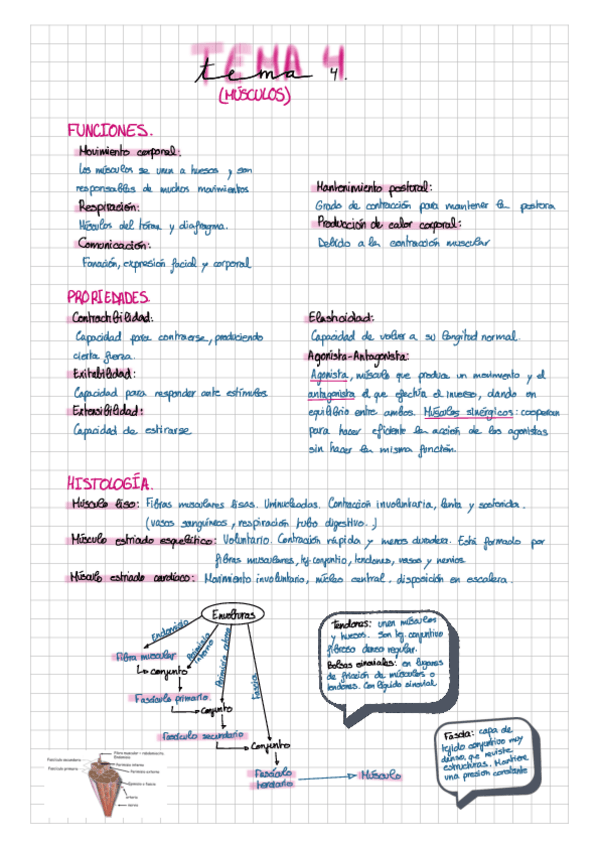 TEMA 4.
tema 4.
(MÚSCULOS)
FUNCIONES.
Movimiento corporal:
Los músculos se unen a huesos y son
responsables de muchos movimientos
Respiración:
Músculos del tórax y diafragma.
Comunicación:
Fonación, expresión facial y corporal
Mantenimiento postural:
Grado de contracción para mantener la postura
Producción de calor corporal:
Debido a la contracción muscular
PROPIEDADES.
Contractibilidad:
Capacidad para contraerse, produciendo
cierta fuerza.
Exitabilidad:
Capacidad para responder ante estímulos
Extensibilidad:
Capacidad de estirarse
Elasticidad:
Capacidad de volver a su longitud normal.
Agonista-Antagonista:
Agonista, músculo que produce un movimiento y el
antagonista el que efectúa el inverso, dando en
equilibrio entre ambos. Músculos sinérgicos: cooperan
para hacer eficiente la acción de los agonistas
sin hacer la misma función.
HISTOLOGÍA.
Músculo liso: Fibras musculares lisas. Uninucleadas. Contracción involuntaria, lenta y sostenida.
(vasos sanguíneos, respiración tubo digestivo.)
Músculo estriado esquelético: Voluntario. Contracción rápida y menos duradera. Está formado por
fibras musculares, tej. conjuntivo, tendones, vasos y nervios.
Músculo estriado cardíaco: Movimiento involuntario, núcleo central. disposición en escalera.
Envolturas
Endomisio
Perimisio interno
Perimisio externo
Fascia
Fibra muscular
Conjunto
Fascículo primario
Conjunto
Fascículo secundario
Conjunto
Fascículo terciario
Músculo
Tendones: unen músculos
y huesos. Son tej. conjuntivo
fibroso denso regular.
Bolsas sinoviales: en lugares
de fricción de músculos o
tendones. Con líquido sinovial
Fascia: capa de
tejido conjuntivo muy
denso, que reviste
estructuras. Mantiene
una presión constante
Fibra muscular
Fascículo secundario
Fascículo primario
Perimisio interno
Perimisio externo